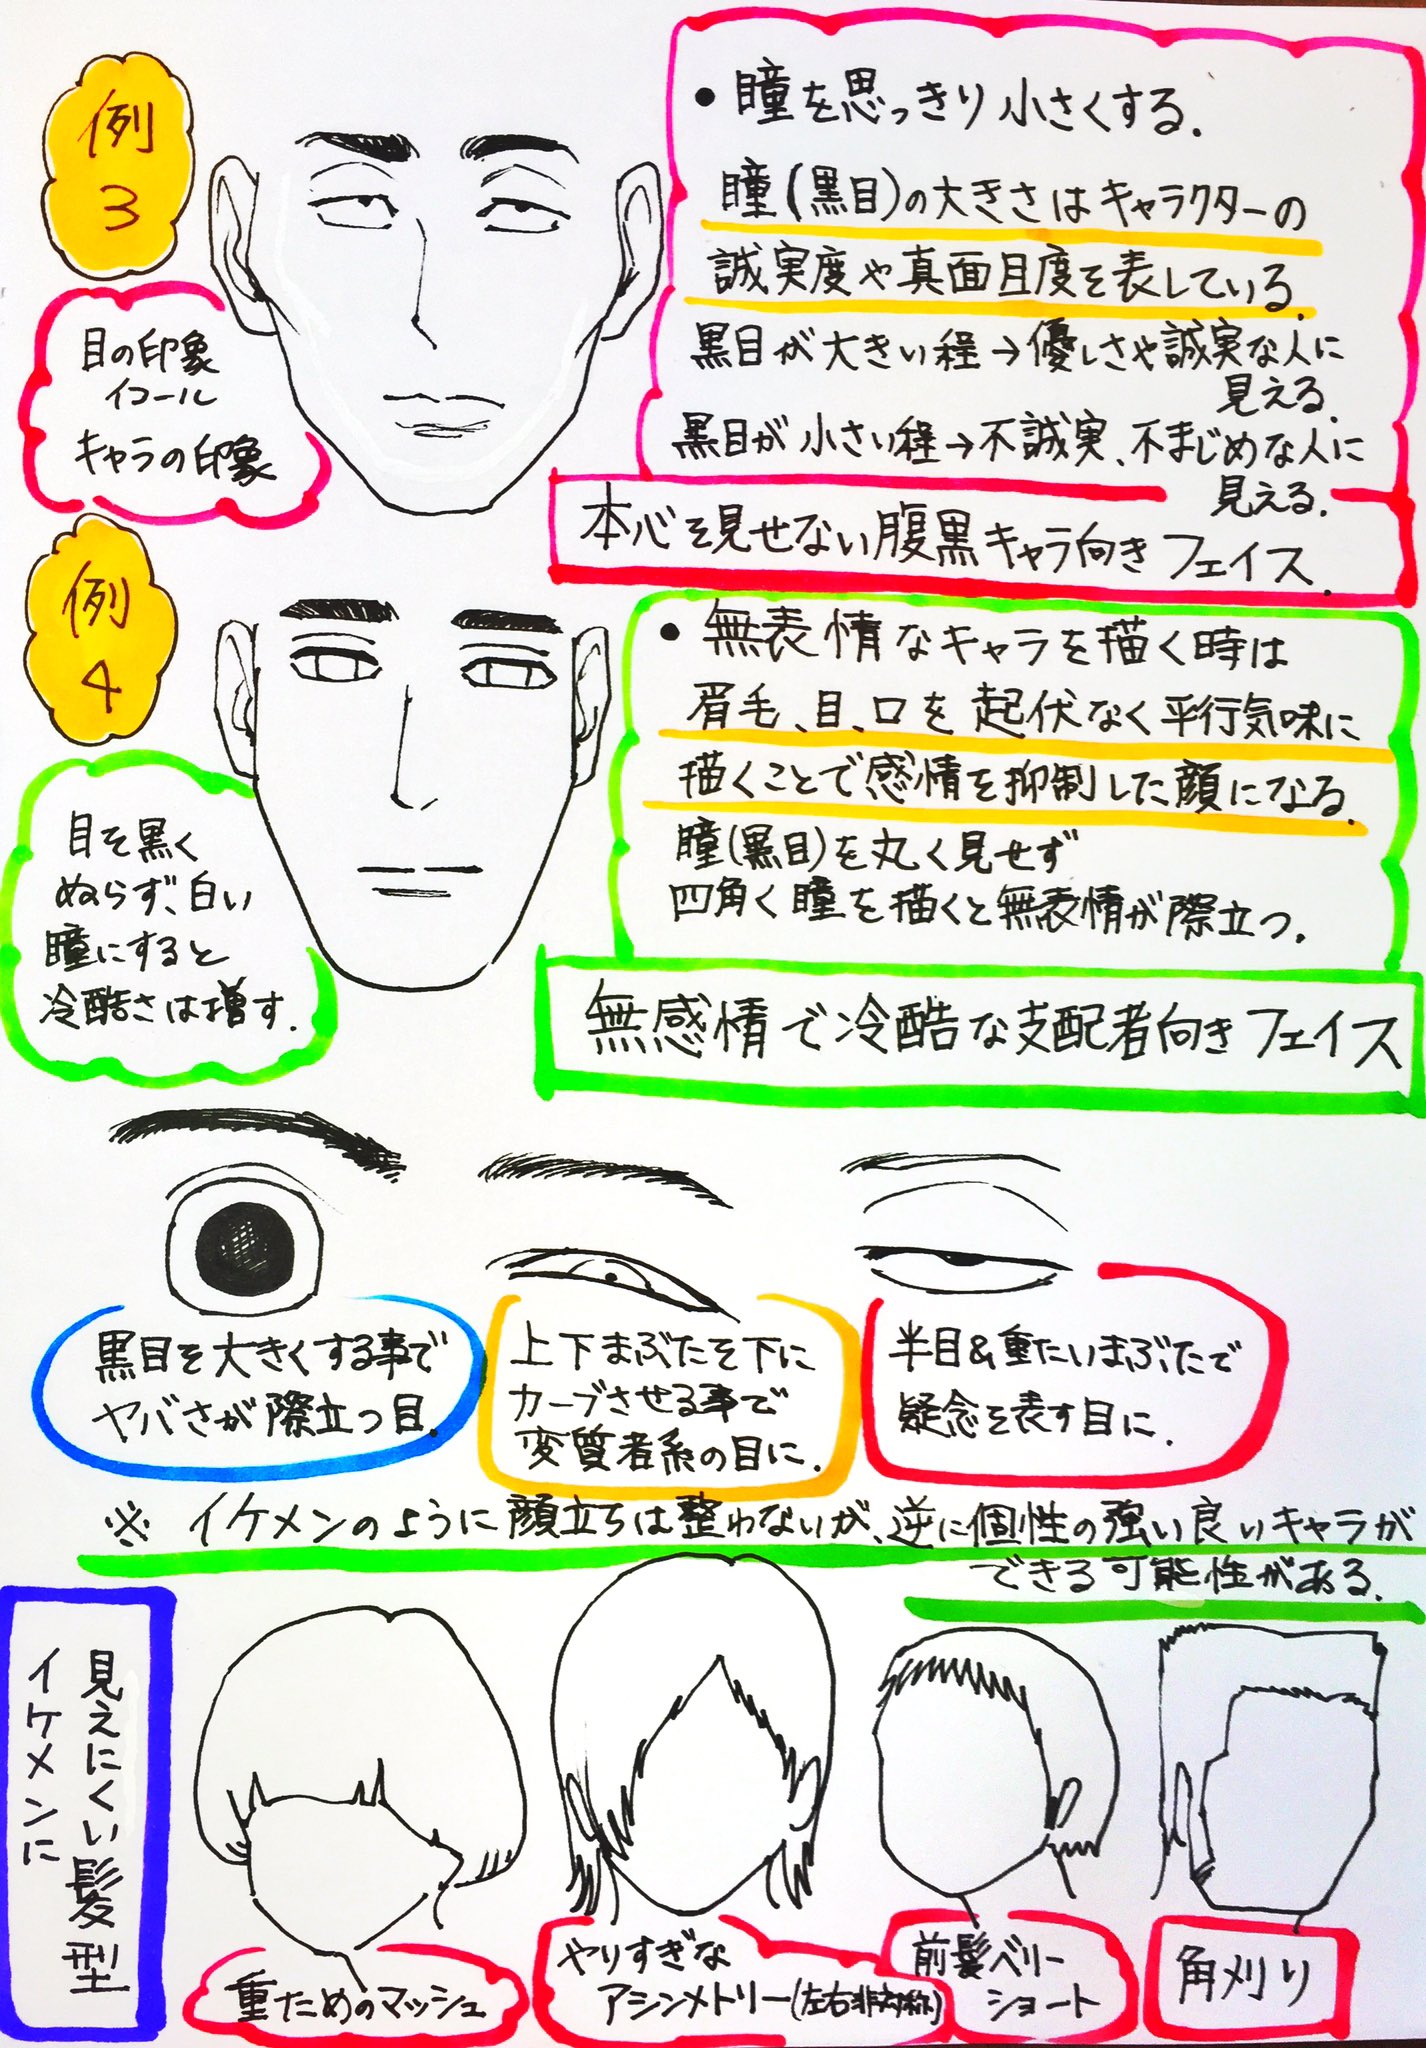 例
3
・瞳を思っきり小さくする.
瞳(黒目)の大きさはキャラクターの
誠実度や真面目度を表している.
黒目が大きい程→優しさや誠実な人に
見える.
黒目が小さい程→不誠実、不まじめな人に
見える.
本心を見せない腹黒キャラ向きフェイス.
目の印象
イコール
キャラの印象
例
4
・無表情なキャラを描く時は
眉毛、目、口を起伏なく平行気味に
描くことで感情を抑制した顔になる.
瞳(黒目)を丸く見せず
四角く瞳を描くと無表情が際立つ.
無感情で冷酷な支配者向きフェイス
目を黒く
ぬらず、白い
瞳にすると
冷酷さは増す.
黒目を大きくする事で
ヤバさが際立つ目.
上下まぶたを下に
カーブさせる事で
変質者系の目に.
半目&重たいまぶたで
疑念を表す目に.
※ イケメンのように顔立ちは整わないが、逆に個性の強い良いキャラが
できる可能性がある.
イケメンに
見えにくい髪型
重ためのマッシュ
やりすぎな
アシンメトリー(左右非対称)
前髪ベリー
ショート
角刈り